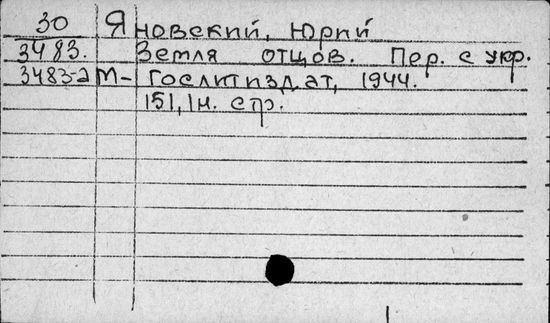 30 Яновский, Юрий
3483. Земля отцов. Пер. с укр.
3483-а М- Гослитиздат, 1944.
151, 1н. стр.